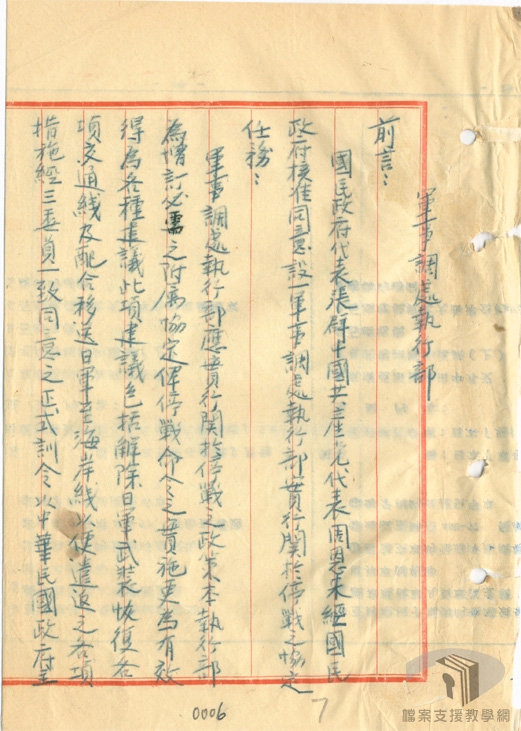 軍事調處執行部
前言：
國民政府代表張群中國共產党代表周恩來經國民
政府核准同意設一軍事調處執行部實行關於停戰之協定
任務：
軍事調處執行部應實行關於停戰之政策本執行部
為增訂必需之附屬協定俾停戰命令之實施更為有效
得為各種建議此項建議包括解除日軍武裝恢復各
項交通线及配合移送日軍至海岸线以便遣返之各項
措施經三委員一致同意之正式訓令以中華民國政府主
0006
7
檔案支援教學網